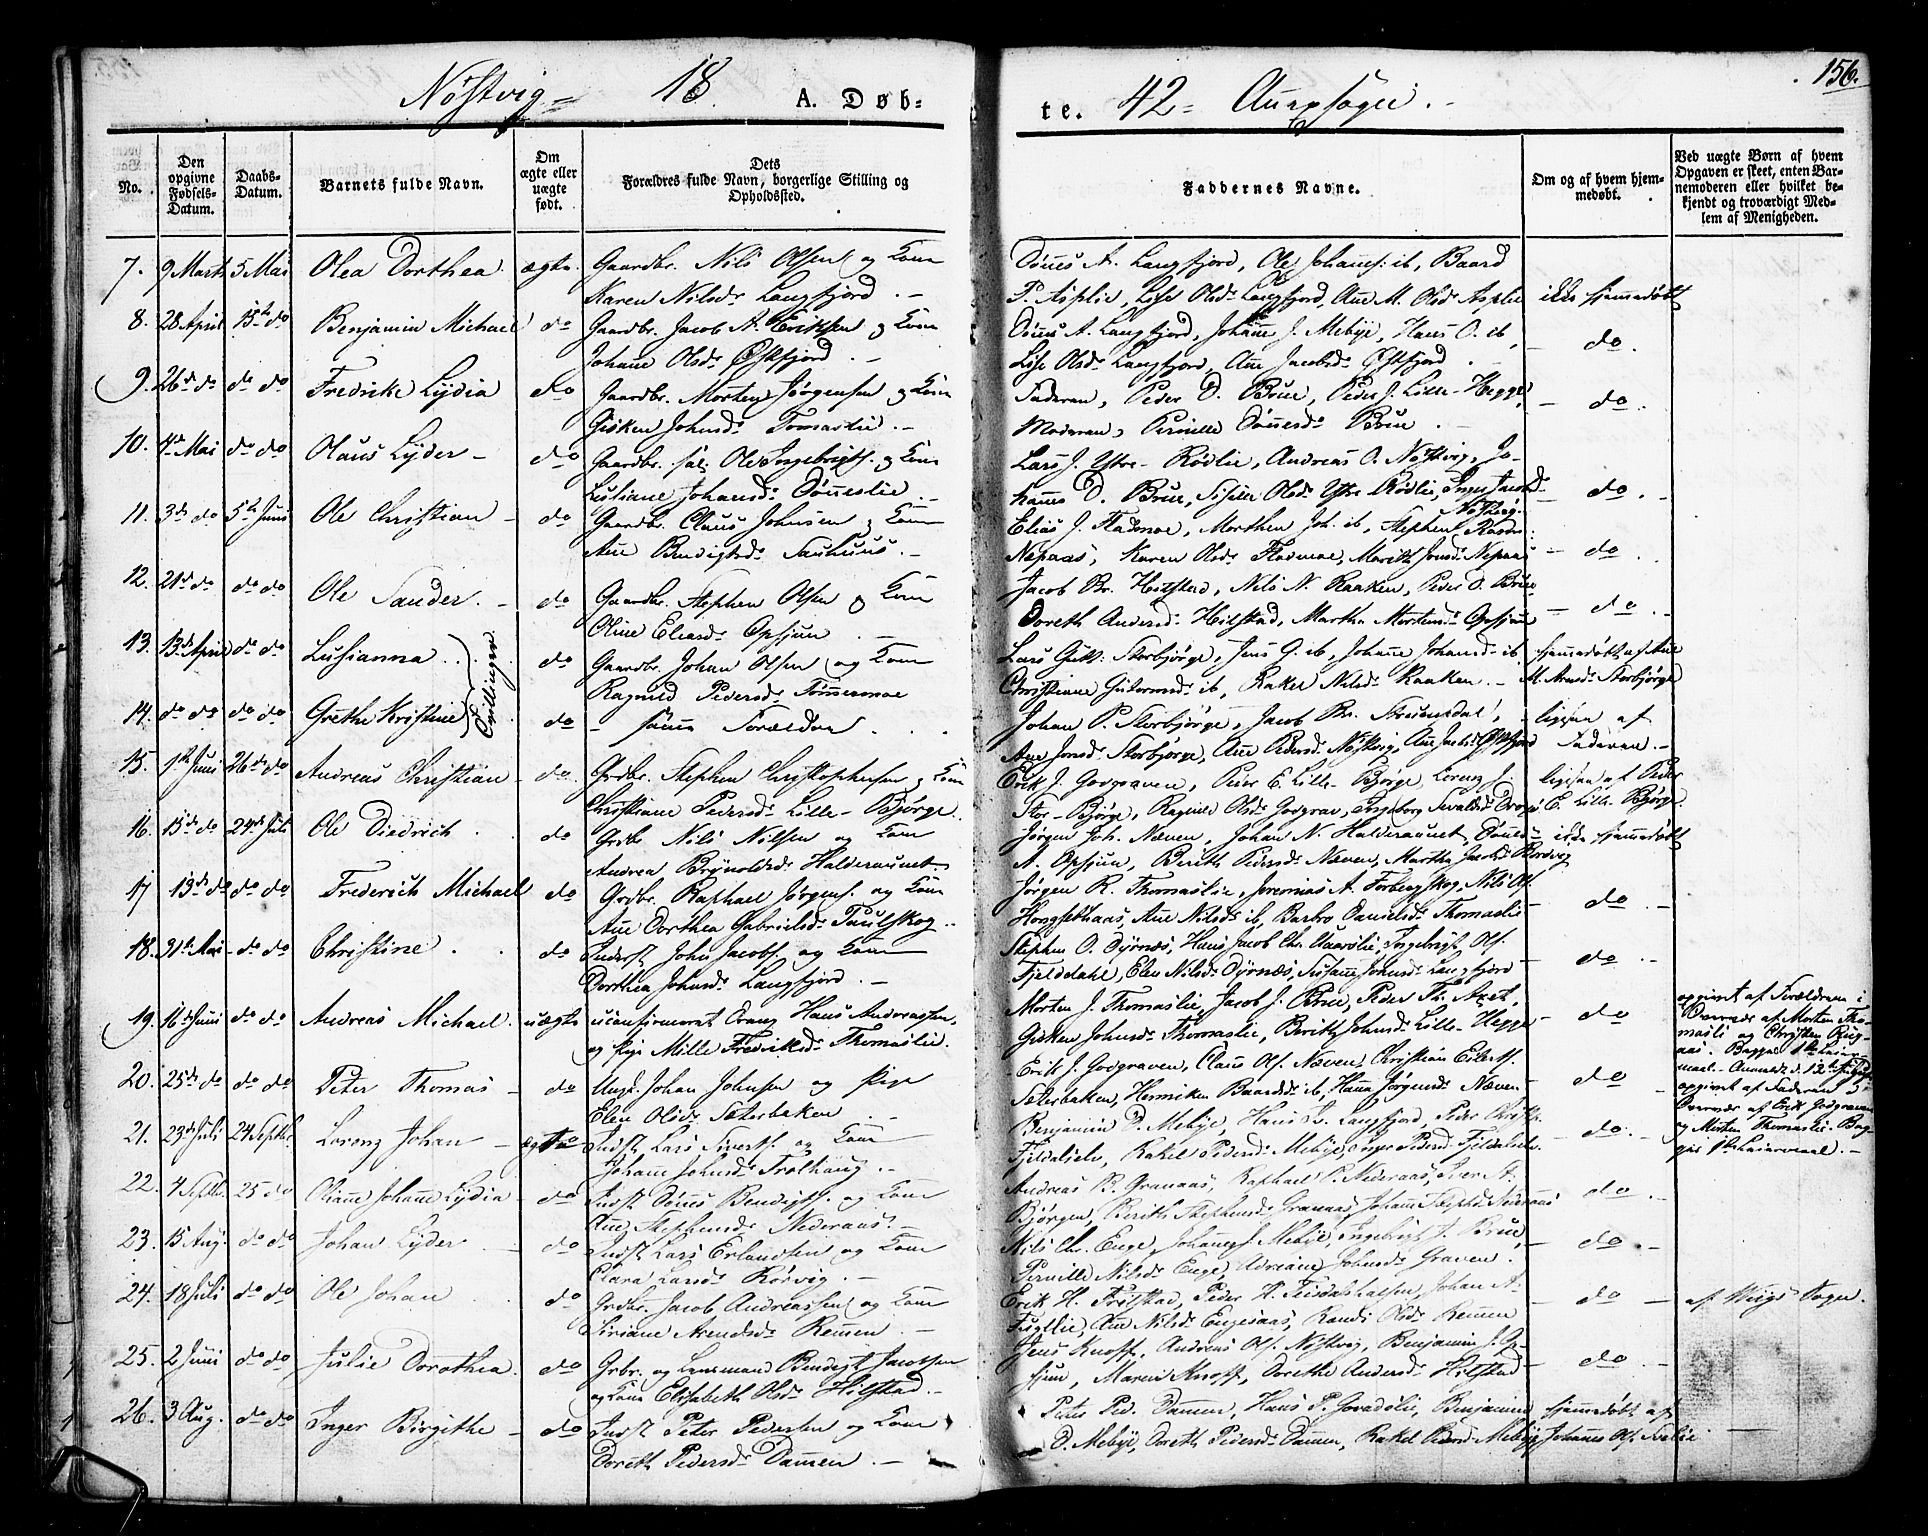 156.
Nøstvig 18 A. Døb-
te. 42 Auxsogn.
No. Den opgivne Fødsels-Datum. Daabs-Datum. Barnets fulde Navn. Om ægte eller uægte født. Dets Forældres fulde Navn, borgerlige Stilling og Opholdsted.
Faddernes Navne. Om og af hvem hjemmedøbt. Ved uægte Børn af hvem Opgaven er skeet, enten Barnemoderen eller hvilket bekjendt og troværdigt Medlem af Menigheden.
7. 9 Marts 5 Mai Olea Dorthea. ægte. Gaardbr. Nils Olsen og Kone
Karen Nilsdr Langfjord. —
Dønes A. Langfjord, Ole Johans. ib, Baard
P. Asplie, Lise Olsdr Langfjord, Ane M. Olsdr Asplie ikke hjemmedøbt
8. 28 April 15de do Benjamin Michael do Gaardbr. Jacob A. Eriksen og Kone
Johane Olsdr Østfjord. —
Dønes A. Langfjord, Johane J. Mebye, Hans O. ib,
Lise Olsdr Langfjord, Ane Jacobsdr Østfjord. — do.
9. 26de do do do Fredrike Lydia do Gaardbr. Morten Jørgensen og Kone
Gisken Johnsdr Tomaslie. —
Faderen, Peder D. Brue, Peder J. Lille-Hegge,
Moderen, Pernille Dønesdr Brue. — do.
10. 4de Mai do do Olaus Lyder — do Gaardbr. sal. Ole Ingebrigts. og Kone
Lusiane Johansdr Dønneslie. —
Lars J. Ytre-Rødlie, Andreas O. Nøstvig, Jo-
hanes D. Brue, Sisille Olsdr Ytre Rødlie, Inger Jacobsdr Nøstvig. — do. —
11. 3de do 5te Juni Ole Christian — do Gaardbr. Claus Johnsen og Kone
Ane Bendigtsdr Sauhuus. —
Elias J. Fladmoe, Morthen Joh. ib, Stephen Rasm.
Nepaas, Karen Olsdr Fladmoe, Marith Jonsdr Nepaas — do.
12. 21de do do do Ole Sander. — do Gaardbr. Stephen Olsen og Kone
Oline Eliasdr Opsjun. —
Jacob Br. Hilstad, Nils N. Raaken, Peder O. Brue
Doreth Andersdr Hilstad, Martha Mortensdr Opsjun — do. —
13. 13de April do do Lusianna. . do Gaardbr. Johan Olsen og Kone
Ragnild Pedersdr Tømmermoe
Tvillinger.
Lars Gutt. Storbjørge, Jens G. ib, Johane Johansdr ib,
Christiane Gutormsdr ib, Rakel Nilsdr Raaken. — hjemmedøbt af Ane
M. Arnsdr Storbjørge
14. do do do do Grethe Kristine do — samme Forældre . . .
Johan P. Storbjørge, Jacob Br. Strømsdal,
Ane Jonsdr Storbjørge, Ane Pedersdr Nøstvig, Ane Jacobsdr Østfjord — ligesaa af
Faderen. —
15. 1ste Juni 26de do Andreas Christian — do. Grdbr. Stephen Christophersen og Kone
Christiane Pedersdr Lille-Bjørge.
Erik J. Godgraven, Peder E. Lille-Bjørge, Lorenz J.
Stor-Bjørge, Ragnild Olsdr Godgrav, Ingeborg Sevaldsdr ligesaa af Peder
E. Lille-Bjørge.
16. 15de do 24de Juli Ole Diedrich. . do Grdbr Nils Nilsen og Kone
Andrea Brynoldsdr Halderaunet.
Jørgen Joh. Næven, Johan N. Halderaunet, Dønes
A. Opsjun, Berith Pedersdr Næven, Martha Jacobsdr ikke hjemmedøbt
17 13de do do do Frederich Michael do Grdbr. Raphael Jørgens. og Kone
Ane Dorthea Gabrielsdr Faulskog.
Jørgen R. Thomaslie, Jeremias A. Forbergskog, Nils Ols.
Hongsethaas, Ane Nilsdr ib, Barbro Danielsdr Thomaslie — do. —
18. 31te Mai do do Christine . . do Inderst John Jacobs. og Kone
Dorthea Johnsdr Langfjord. —
Stephen O. Dyrnæs, Hans Jacob Chr. Aaeslie, Ingebrigt Ols.
Fjelddahl, Elen Nilsdr Dyrnæs, Susane Johnsdr Langfjord — do. —
19. 16de Juni do do Andreas Michael. uægte uconfirmeret Dreng Hans Andreassen,
og Pige Mille Fredriksdr Thomaslie.
Morten J. Thomaslie, Jacob J. Brue, Peder Th. Axet,
Gisken Johnsdr Thomaslie, Berith Johnsdr Lille-Hegge — do
opgivet af Forældrene i
Overvær af Morten Tho-
masli og Christen Rug-
aas. Begges 1ste Leier-
maal. Anmeldt d. 12te Juli
20. 25de do do do Peter Thomas — do Ungk. Johan Johnsen og Pige
Elen Olsdr Sæterbaken . —
Erik J. Godgraven, Claus Ols. Næven, Christian Eilerts.
Sæterbaken, Henriken Baardsdr ib, Hanna Jørgensdr Næven — do
opgivet af Faderen i
Overvær af Erik Godgraven
og Morten Thomaslie. Beg-
ges 1ste Leiermaal. —
21. 23de Juli 24 Septbr. Lorenz Johan — ægte Indst. Lars Siverts. og Kone
Johane Johnsdr Trølhaug. —
Benjamin D. Mebye, Hans L. Langfjord, Peder Christs.
Fjeldalselv, Rakel Pedersdr Mebye, Inger Pedersdr Fjeldalselv — do. —
22. 4 Septbr. 25 do Oliane Johane Lydia — do Indst Dønes Bendigts. og Kone
Ane Stephensdr Nederaas. —
Andreas B. Granaas, Raphael P. Nederaas, Iver A.
Bjørgen, Berith Stephensdr Granaas, Johane Nederaas — do. —
23. 15 Aug. do do Johan Lyder — do Indst Lars Erlandsen og Kone
Clara Larsdr Rørvig. —
Nils Chr. Enge, Johanes J. Mebye, Ingebrigt J. Brue,
Pernille Nilsdr Enge, Adriane Johnsdr Graven. — do —
24. 18 Juli do do Ole Johan . do Grdbr. Jacob Andreassen og Kone
Siriane Arendsdr Remen. —
Erik H. Frølstad, Peder H. Fuglie, Johan A.
Fuglie, Ane Nilsdr Engesaas, Randi Olsdr Remen — do — af Wiigs Sogn.
25. 2 Juni do do Julie Dorothea. do Grbr. og Lænsmand Bendigt Jacobsen
og Kone Elisabeth Olsdr Hilstad. —
Jens Knoff, Andreas Ols. Nøstvig, Benjamin J. Op-
sjun, Maren Knoff, Dorethe Andersdr Hilstad — do. —
26. 3 Aug. do do Inger Birgithe — do Indst Peter Pedersen og Kone
Doreth Pedersdr Damen. —
Peter Ped. Damen, Hans P. Goradslie, Benjamin
D. Mebye, Doreth Pedersdr Damen, Rakel Pedersdr Mebye, hjemmedøbt af
Johannes Ols.